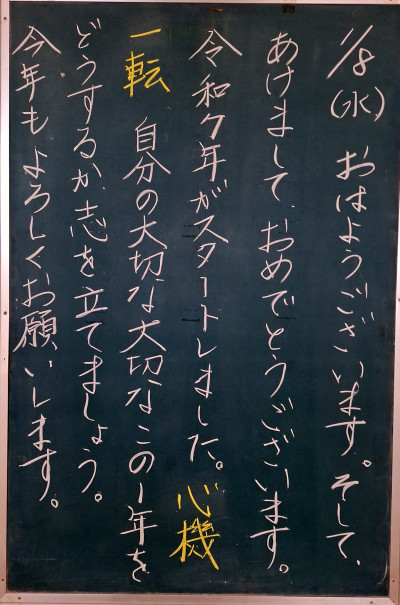 1/8(水) おはようございます。そして、
あけまして、おめでとうございます。
令和7年がスタートしました。心機
一転 自分の大切な大切なこの1年を
どうするか、志を立てましょう。
今年もよろしくお願いします。